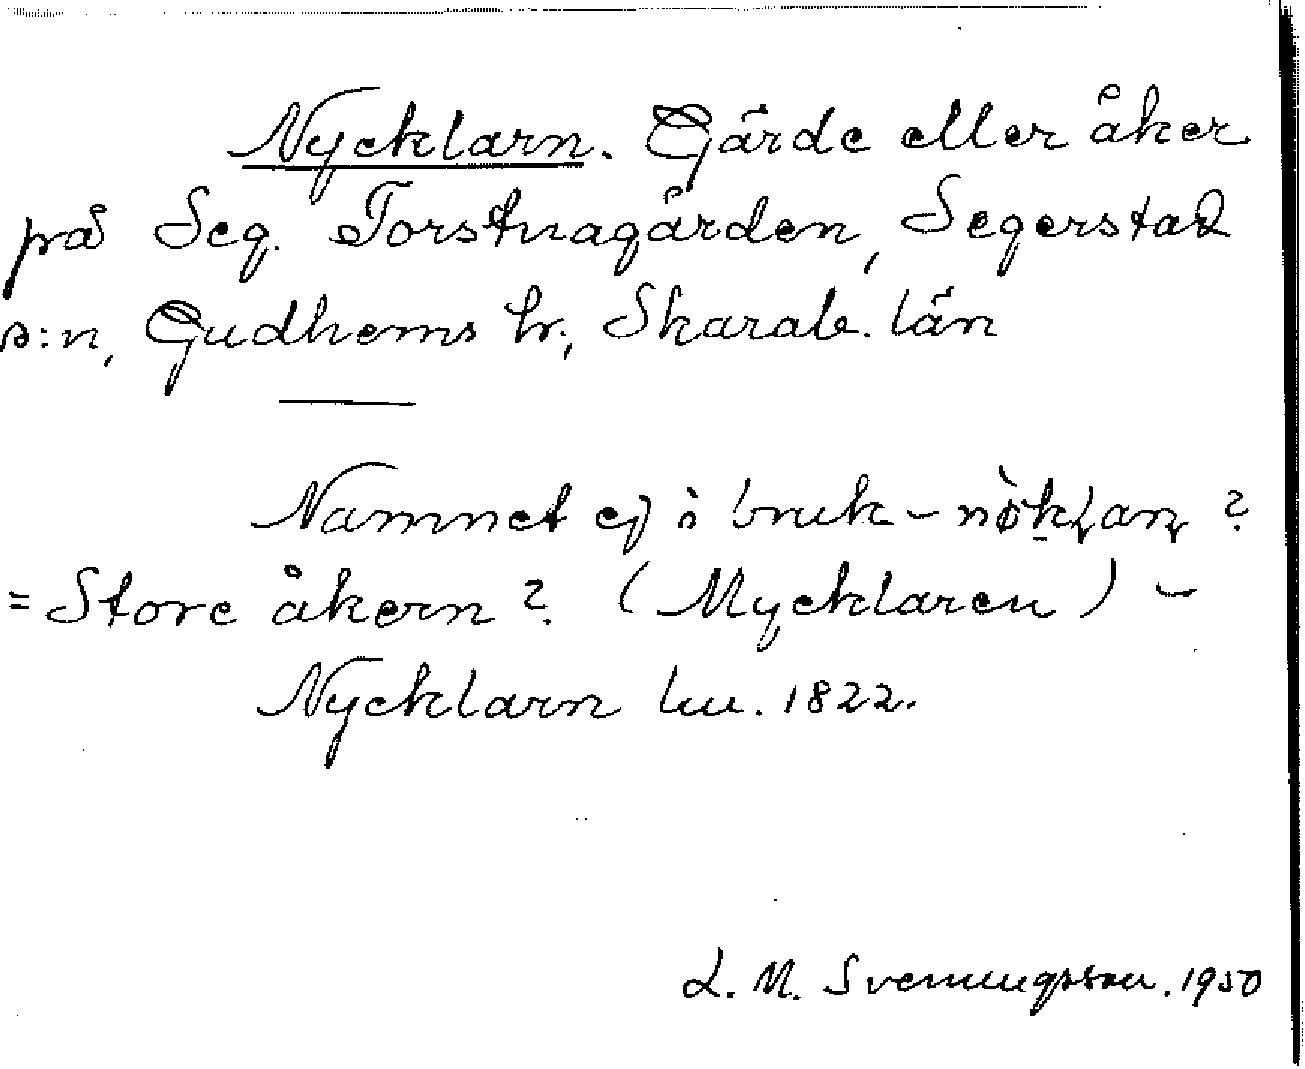 Nycklarn. Gärde eller åker
på Seg. Torstnagården, Segerstad
s:n, Gudhems hr., Skarab. län
Namnet ej i bruk – nøklan ?
= Store åkern ? (Mycklaren) –
Nycklarn lu. 1822.
L. M. Svenungsson. 1950